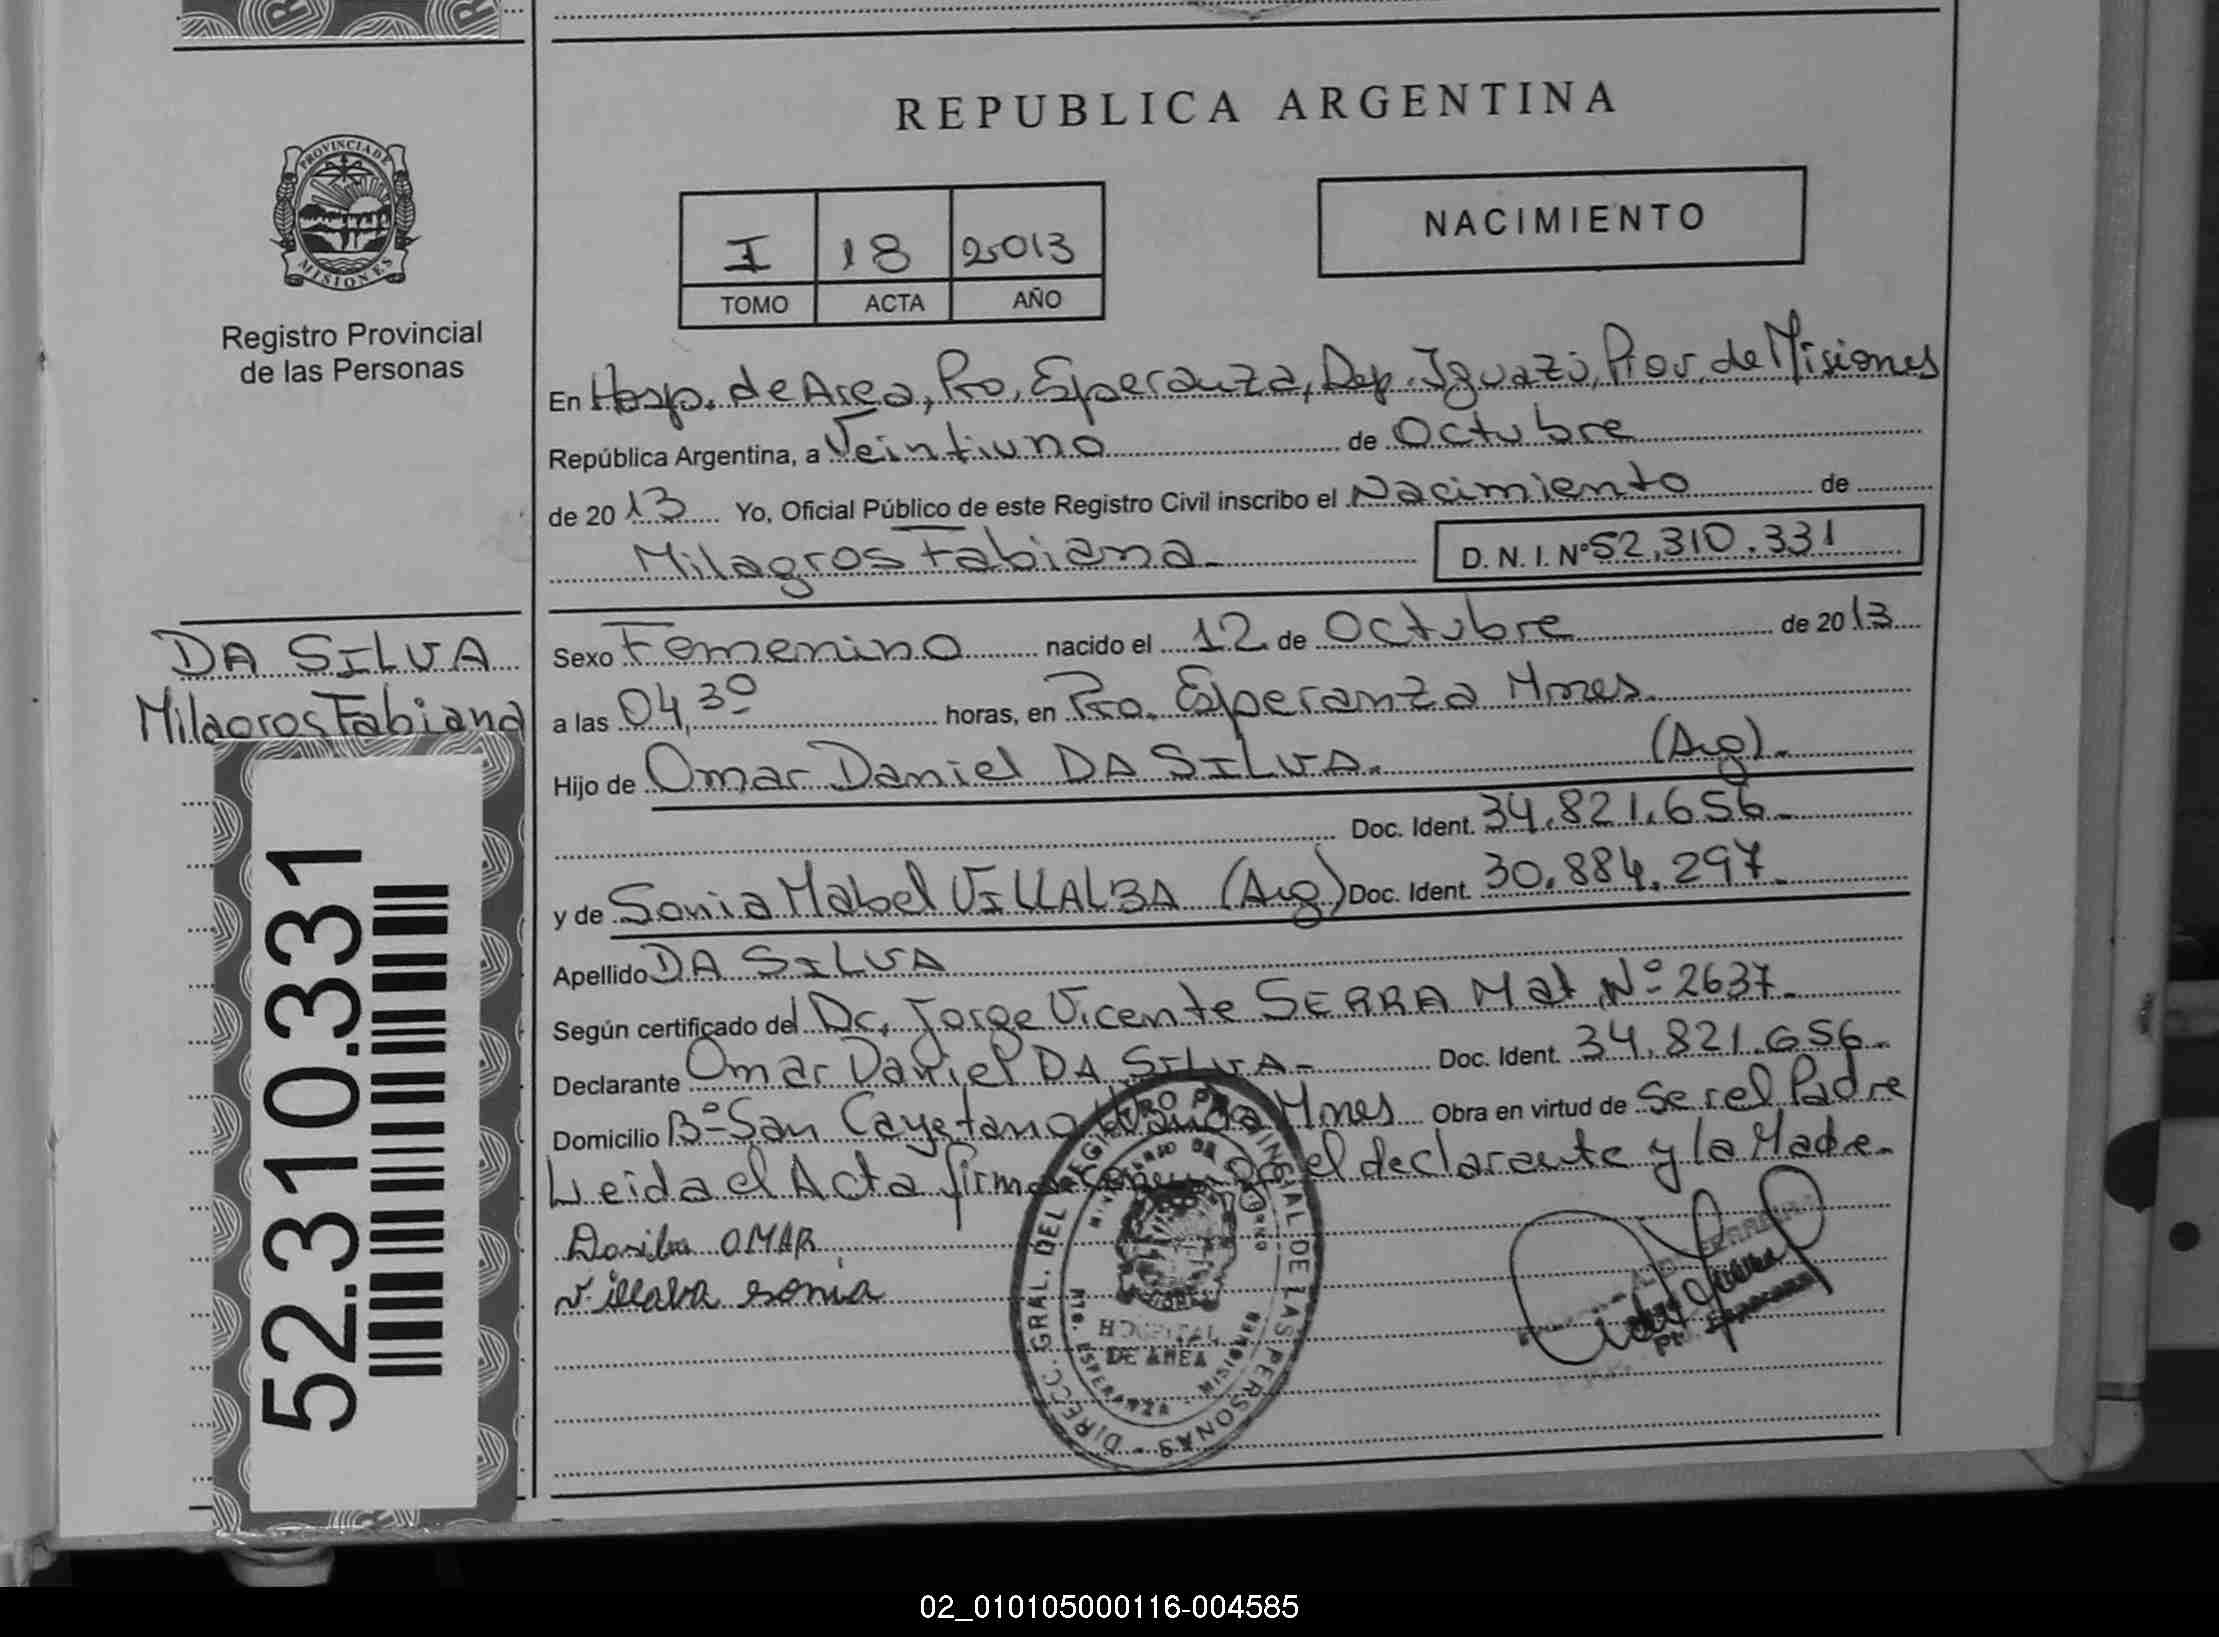 REPUBLICA ARGENTINA
PROVINCIA DE
MISIONES
Registro Provincial
de las Personas
I 18 2013
TOMO ACTA AÑO
NACIMIENTO
En Hosp. de Area, Pto. Esperanza, Dep. Iguazú, Prov. de Misiones
República Argentina, a Veintiuno de Octubre
de 2013 Yo, Oficial Público de este Registro Civil inscribo el Nacimiento de
Milagros Fabiana
D. N. I. Nº 52.310.331
DA SILVA
Milagros Fabiana
52.310.331
Sexo Femenino nacido el 12 de Octubre de 2013
a las 04,30 horas, en Pto. Esperanza Mnes.
Hijo de Omar Daniel DA SILVA. (Arg).
Doc. Ident. 34.821.656.
y de Sonia Mabel VILLALBA (Arg) Doc. Ident. 30.884.297.
Apellido DA SILVA
Según certificado del Dr. Jorge Vicente SERRA Mat. Nº 2637.
Declarante Omar Daniel DA SILVA.- Doc. Ident. 34.821.656.
Domicilio Bº San Cayetano Wanda Mnes Obra en virtud de Ser el Padre
Leida el Acta firma conmigo el declarante y la Madre.
Dasilva OMAR
Villava sonia
DIRECC. GRAL. DEL REGISTRO PROVINCIAL DE LAS PERSONAS
HOSPITAL
DE AREA
PTO. ESPERANZA - MISIONES
02_010105000116-004585